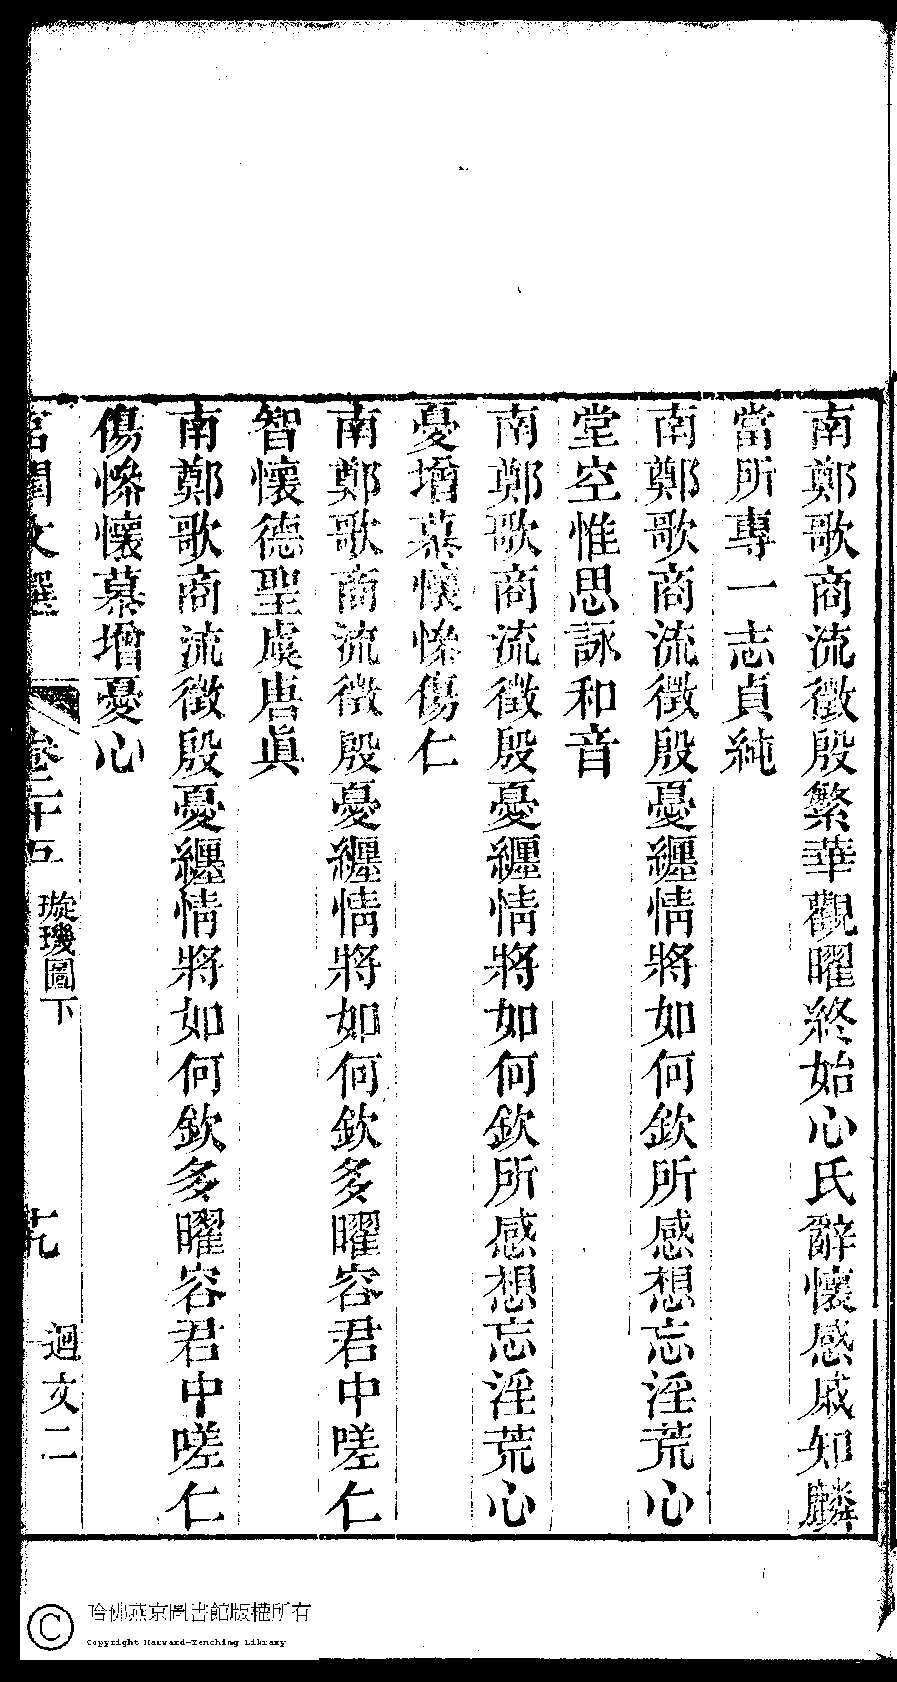 南鄭歌商流徵殷繁華觀曜終始心氏辭懷感戚知麟
當所專一志貞純
南鄭歌商流徵殷憂纏情將如何欽所感想忘淫荒心
堂空惟思詠和音
南鄭歌商流徵殷憂纏情將如何欽所感想忘淫荒心
憂增慕懷慘傷仁
南鄭歌商流徵殷憂纏情將如何欽多曜容君中嗟仁
智懷德聖虞唐眞
南鄭歌商流徵殷憂纏情將如何欽多曜容君中嗟仁
傷慘懷慕增憂心
宮閨文選
卷二十五
璇璣圖下
迴文二
哈佛燕京圖書館版權所有
Copyright Harvard-Yenching Library